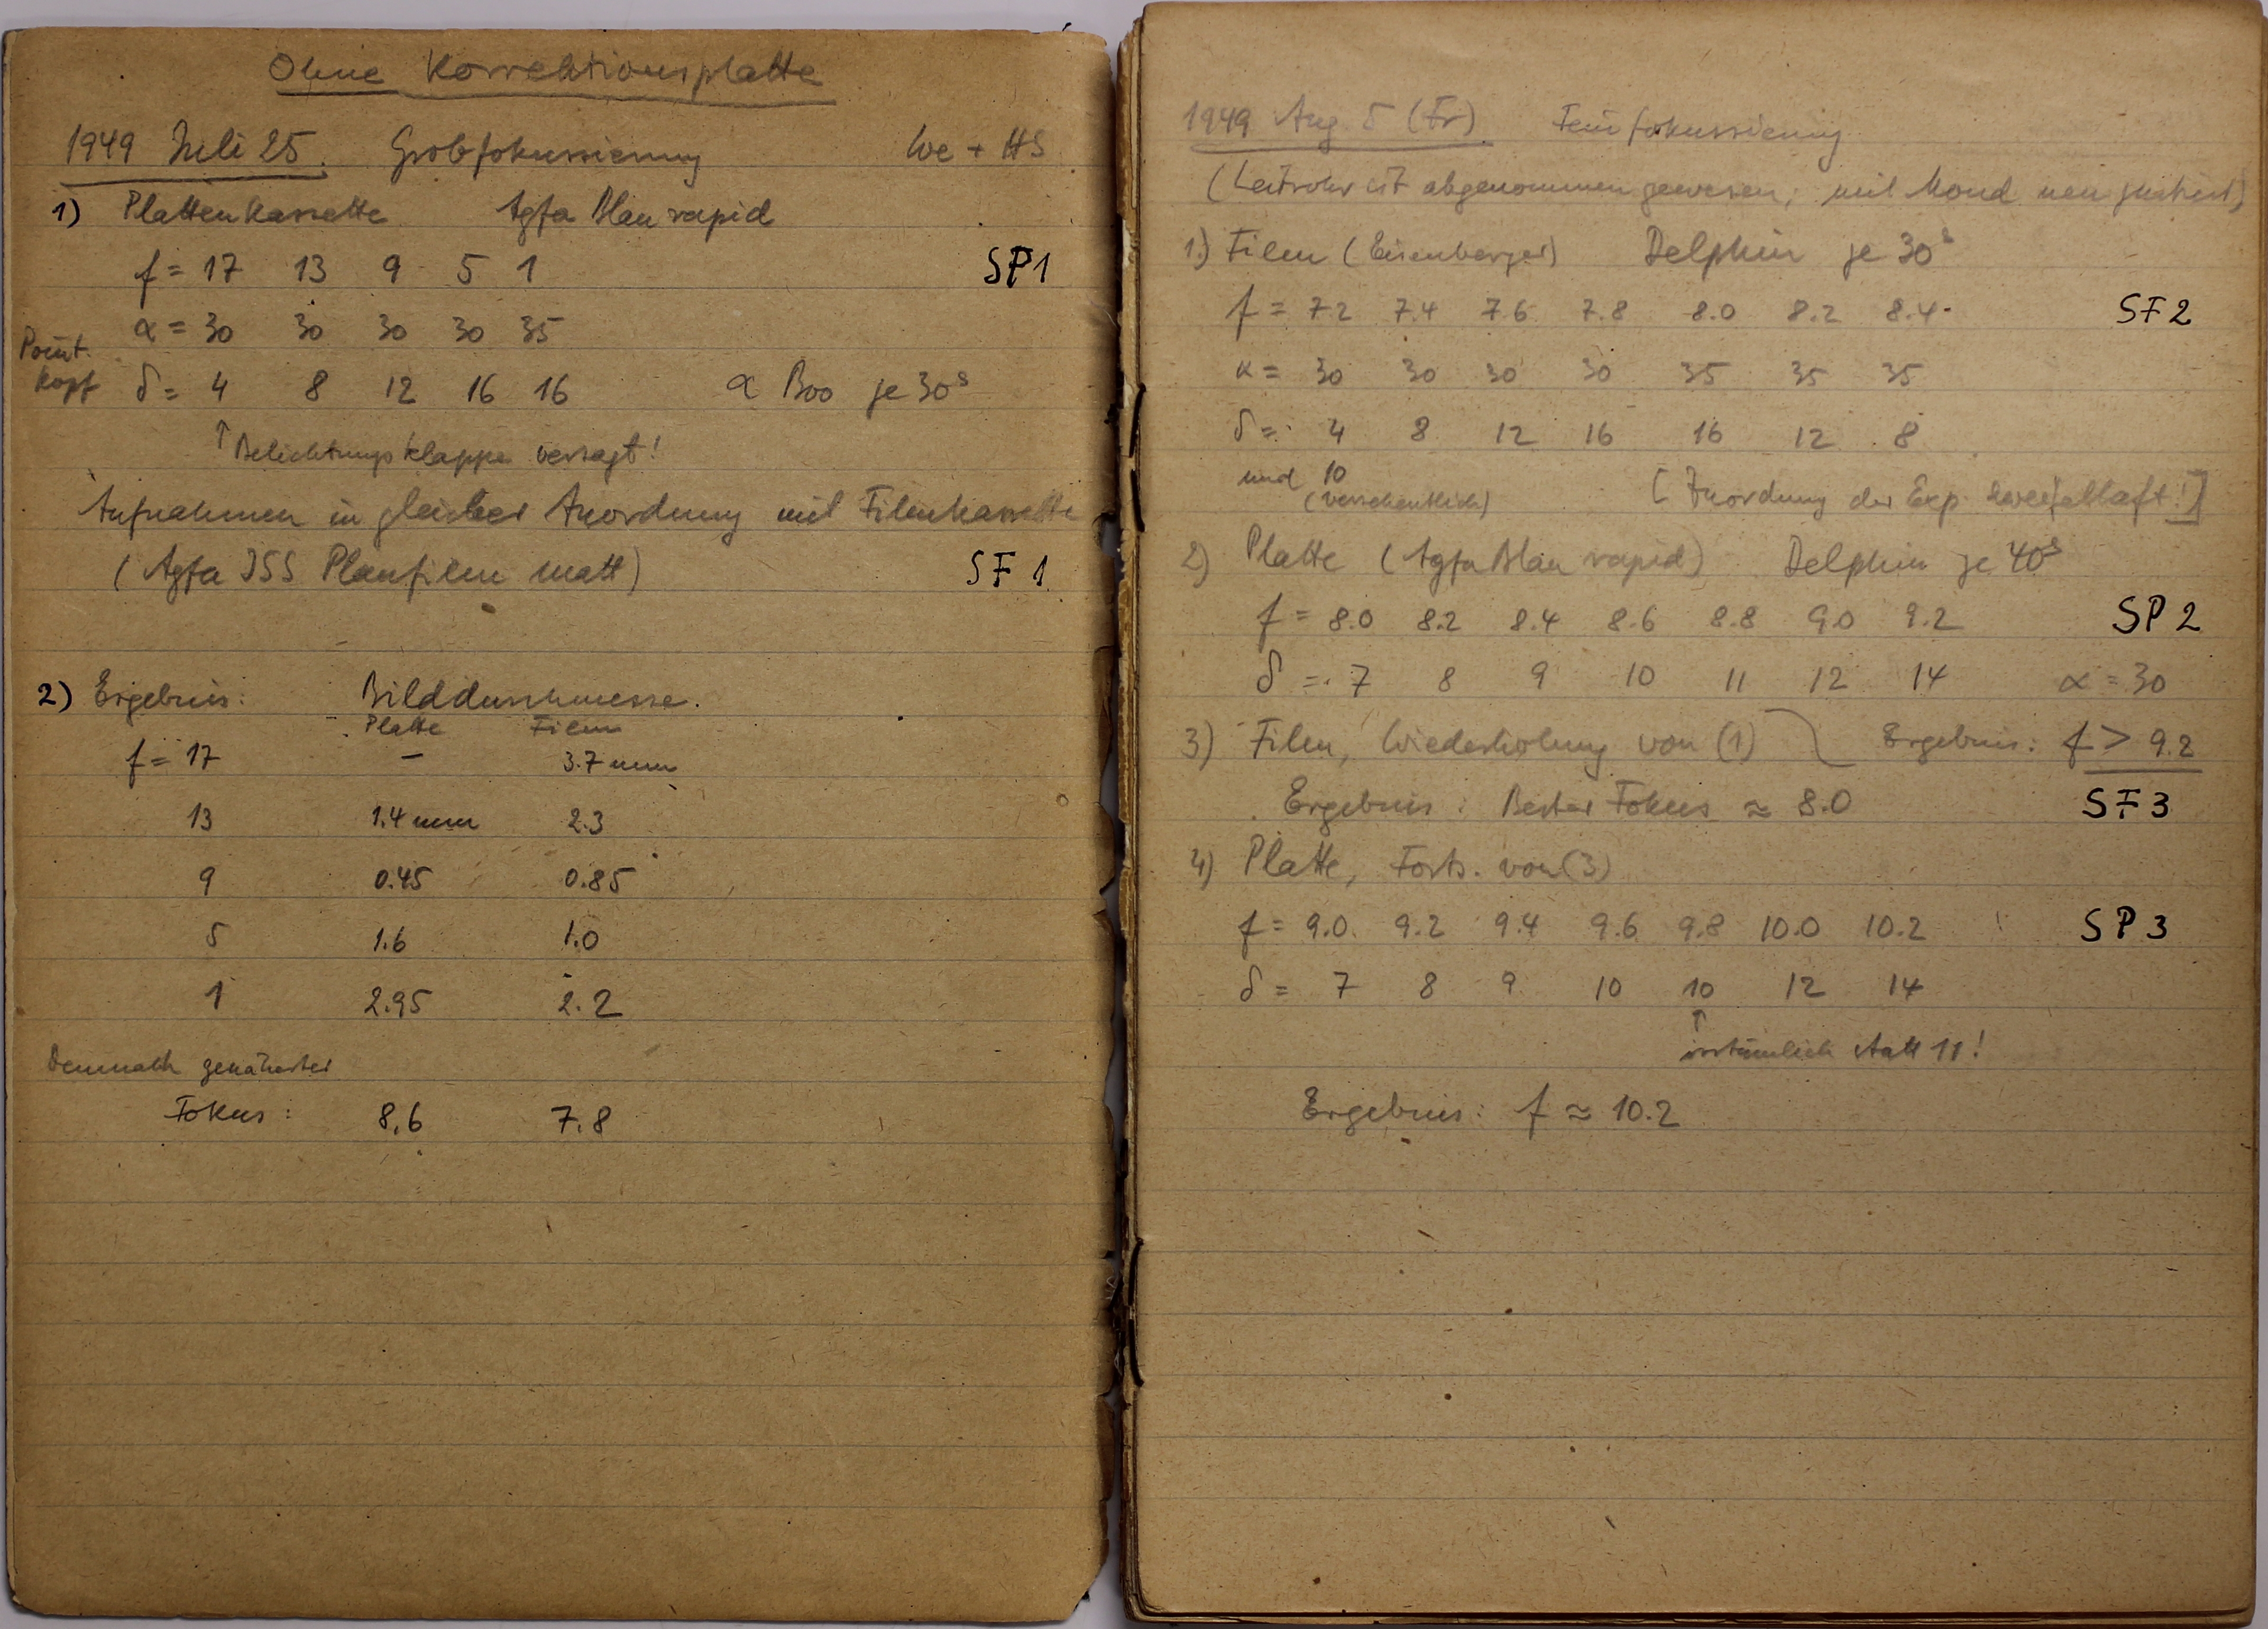 Ohne Korrektionsplatte
1949 Juli 25. Grobfokussierung We + HS
1) Plattenkassette Agfa Blau rapid
f = 17 13 9 5 1 SP1
α = 30 30 30 30 35
Point.
Kopf δ = 4 8 12 16 16 α Boo je 30s
↑ Belichtungsklappe versagt!
Aufnahmen in gleicher Anordnung mit Filmkassette
(Agfa ISS Planfilm matt) SF 1
2) Ergebnis: Bilddurchmesser.
Platte Film
f = 17 – 3.7 mm
13 1.4 mm 2.3
9 0.45 0.85
5 1.6 1.0
1 2.95 2.2
Demnach genäherter
Fokus: 8.6 7.8
1949 Aug 5 (Fr) Feinfokussierung
(Leitrohr ist abgenommen gewesen; mit Mond neu justiert)
1.) Film (Eisenberger) Delphin je 30s
f = 7.2 7.4 7.6 7.8 8.0 8.2 8.4 SF2
α = 30 30 30 30 35 35 35
δ = 4 8 12 16 16 12 8
und 10
(versehentlich) [Zuordnung der Exp. zweifelhaft!]
2) Platte (Agfa Blau rapid) Delphin je 40s
f = 8.0 8.2 8.4 8.6 8.8 9.0 9.2 SP2
δ = 7 8 9 10 11 12 14 α = 30
3) Film, Wiederholung von (1) Ergebnis: f > 9.2
Ergebnis: Bester Fokus ≈ 8.0 SF3
4) Platte, Forts. von (3)
f = 9.0 9.2 9.4 9.6 9.8 10.0 10.2 SP3
δ = 7 8 9 10 10 12 14
↑
irrtümlich statt 11!
Ergebnis: f ≈ 10.2